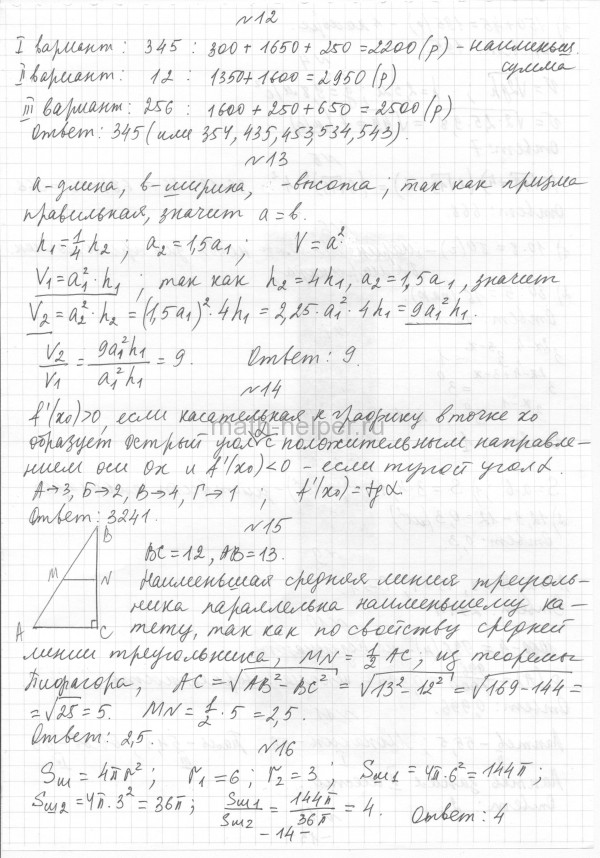 №12
I вариант: 345 : 300 + 1650 + 250 = 2200 (р) - наименьш.
сумма
II вариант: 12 : 1350 + 1600 = 2950 (р)
III вариант: 256 : 1600 + 250 + 650 = 2500 (р)
Ответ: 345 (или 354, 435, 453, 534, 543).
№13
а - длина, в - ширина, - высота; так как призма
правильная, значит а = в.
h₁ = 1/4 h₂; a₂ = 1,5a₁; V = a²
V₁ = a₁² · h₁; так как h₂ = 4h₁, a₂ = 1,5a₁, значит
V₂ = a₂² · h₂ = (1,5a₁)² · 4h₁ = 2,25 · a₁² · 4h₁ = 9a₁²h₁.
V₂/V₁ = 9a₁²h₁/a₁²h₁ = 9. Ответ: 9.
№14
f'(x₀) > 0, если касательная к графику в точке x₀
math-helper.ru
образует острый угол α с положительным направле-
нием оси Ох и f'(x₀) < 0 - если тупой угол α.
А→3, Б→2, В→4, Г→1; f'(x₀) = tg α
Ответ: 3241.
№15
B
M
N
A
C
BC = 12, AB = 13.
Наименьшая средняя линия треуголь-
ника параллельна наименьшему ка-
тету, так как по свойству средней
линии треугольника, MN = 1/2 AC; из теоремы
Пифагора, AC = √(AB² - BC²) = √(13² - 12²) = √(169 - 144) =
= √25 = 5. MN = 1/2 · 5 = 2,5.
Ответ: 2,5.
№16
Sш = 4πr²; r₁ = 6; r₂ = 3; Sш1 = 4π · 6² = 144π;
Sш2 = 4π · 3² = 36π; Sш1/Sш2 = 144π/36π = 4. Ответ: 4
- 14 -